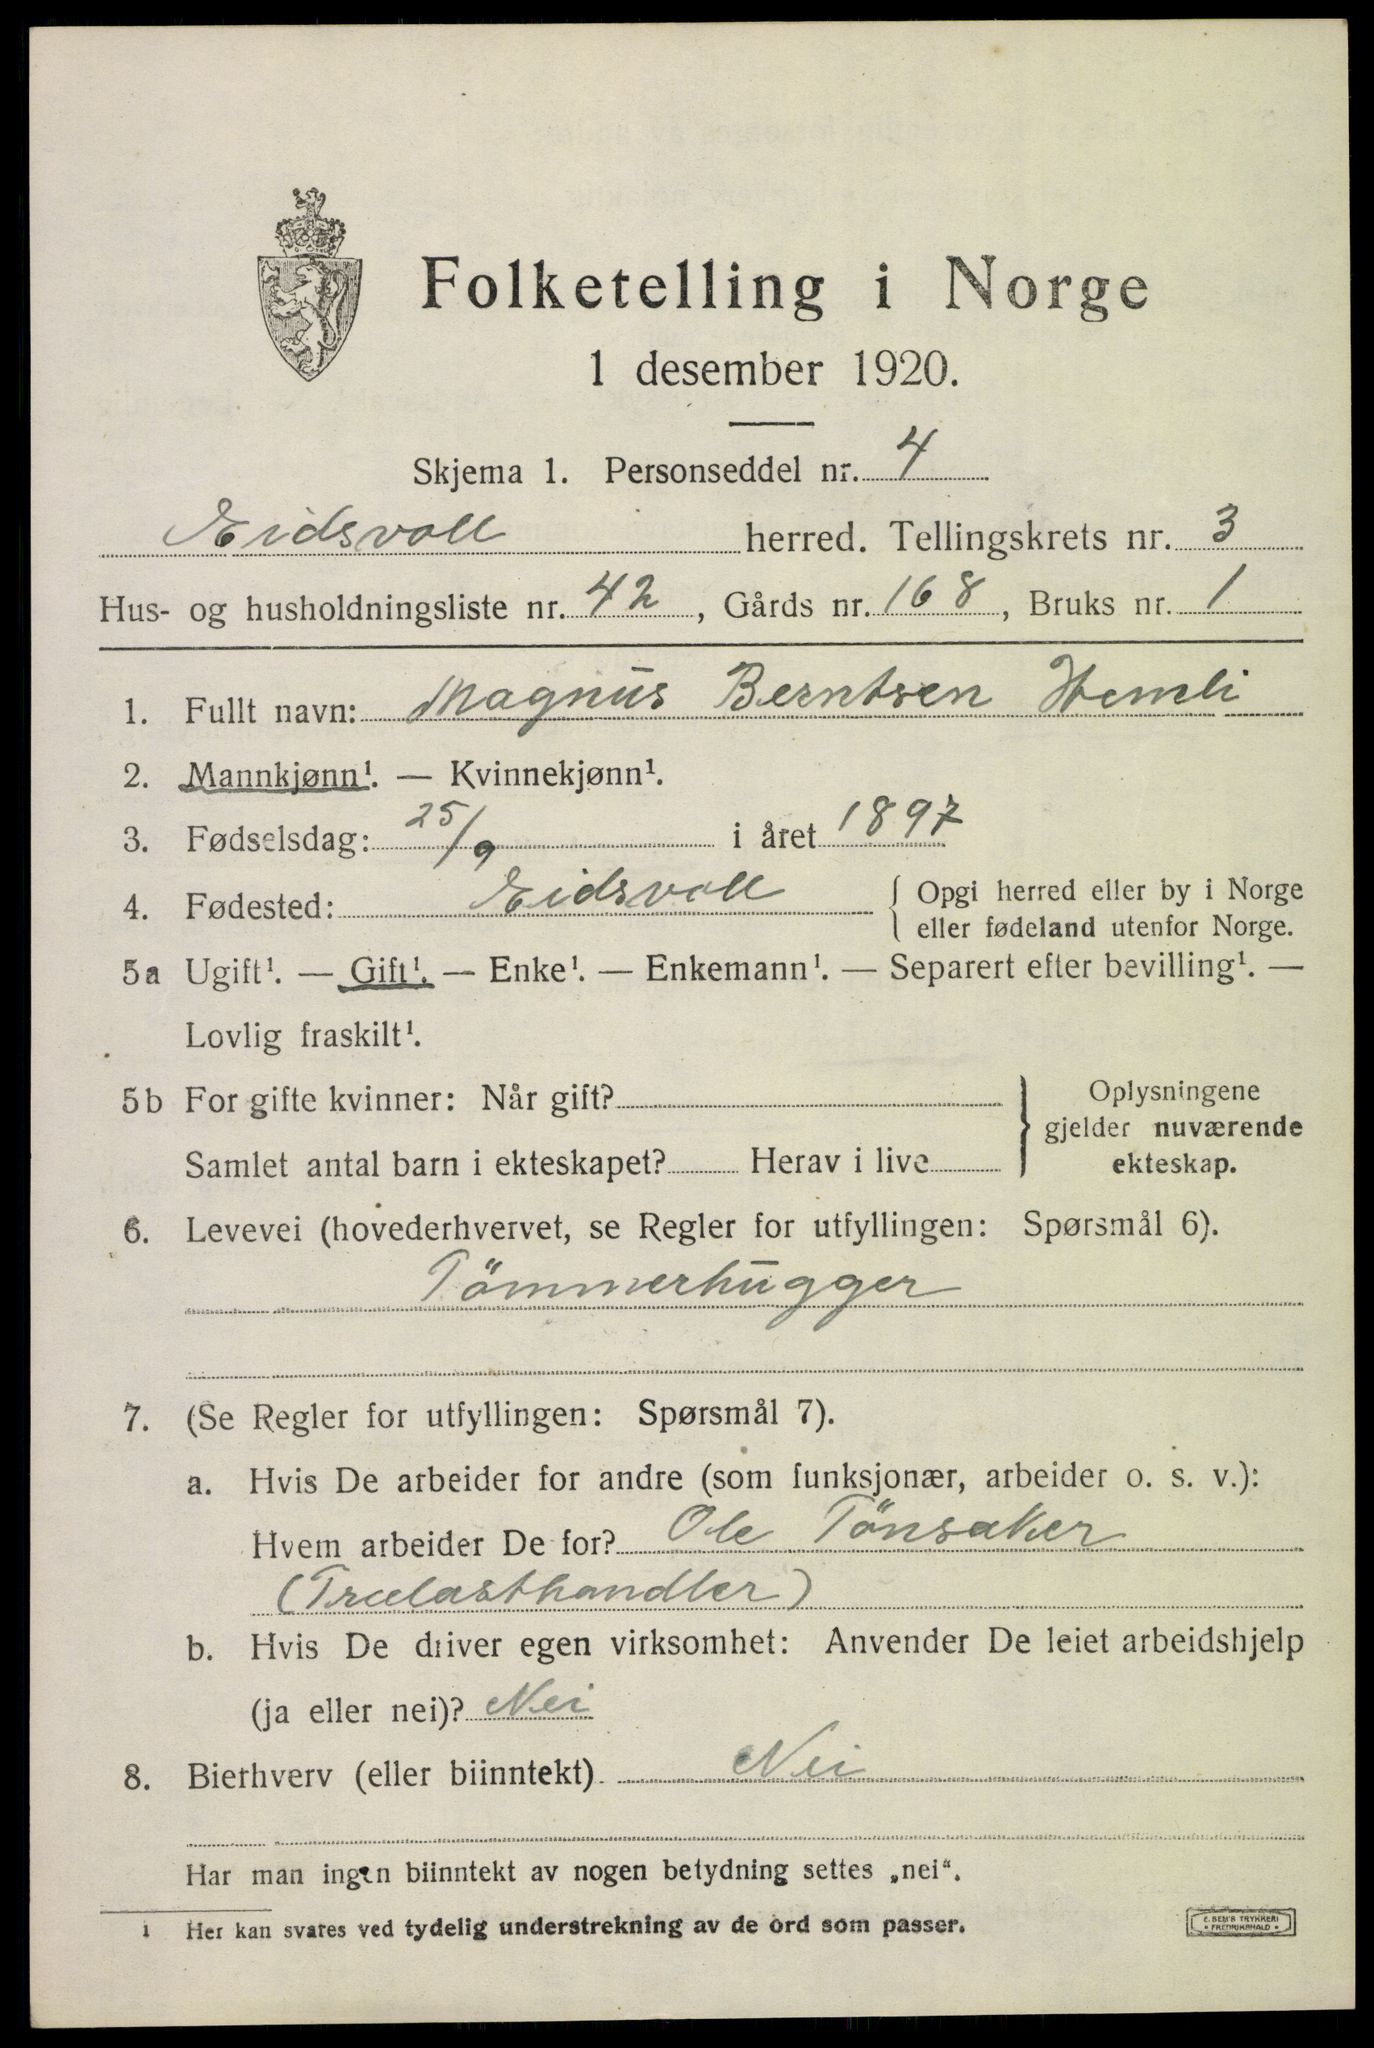 Folketelling i Norge
1 desember 1920.
Skjema 1. Personseddel nr. 4
Eidsvoll herred. Tellingskrets nr. 3
Hus- og husholdningsliste nr. 42, Gårds nr. 168, Bruks nr. 1
1. Fullt navn: Magnus Berntsen Hemli
2. Mannkjønn¹. — Kvinnekjønn¹.
3. Fødselsdag: 25/9 i året 1897
4. Fødested: Eidsvoll { Opgi herred eller by i Norge
eller fødeland utenfor Norge.
5a Ugift¹. — Gift¹. — Enke¹. — Enkemann¹. — Separert efter bevilling¹. —
Lovlig fraskilt¹.
5b For gifte kvinner: Når gift? } Oplysningene
gjelder nuværende
Samlet antal barn i ekteskapet? Herav i live ekteskap.
6. Levevei (hovederhvervet, se Regler for utfyllingen: Spørsmål 6).
Tömmerhugger
7. (Se Regler for utfyllingen: Spørsmål 7).
a. Hvis De arbeider for andre (som funksjonær, arbeider o. s. v.):
Hvem arbeider De for? Ole Tönsaker
(Trælasthandler)
b. Hvis De driver egen virksomhet: Anvender De leiet arbeidshjelp
(ja eller nei)? Nei
8. Bierhverv (eller biinntekt). Nei
Har man ingen biinntekt av nogen betydning settes „nei“.
1 Her kan svares ved tydelig understrekning av de ord som passer.
E. SEM'S TRYKKERI
• FREDRIKSHALD •